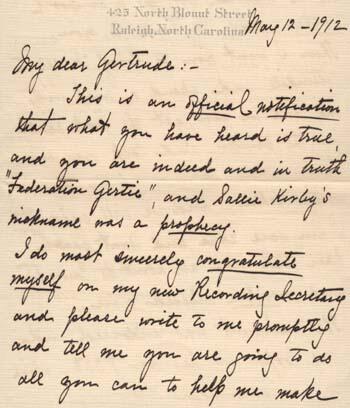 425 North Blount Street
Raleigh, North Carolina
May 12 - 1912
My dear Gertrude:-
This is an official notification
that what you have heard is true,
and you are indeed and in truth
"Federation Gertie", and Sallie Kirby's
nickname was a prophecy.
I do most sincerely congratulate
myself on my new Recording Secretary
and please write to me promptly
and tell me you are going to do
all you can to help me make